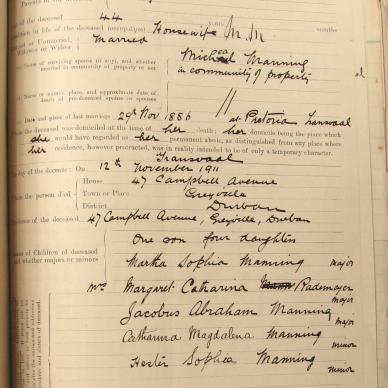 of the deceased 44 years months
condition in life of the deceased (occupation) Housewife M.M
Married or Unmarried,
Widower or Widow Married
Name of surviving spouse (if any), and whether Michael Manning
married in community of property or not in community of property
(b) Name or names, place, and approximate date of
death of predeceased spouse or spouses //
Date and place of last marriage 29th Nov 1886 at Pretoria Transvaal
the deceased was domiciled at the time of her death; her domicile being the place which
she would have regarded as her permanent abode, as distinguished from any place where
her residence, however protracted, was in reality intended to be of only a temporary character.
Transvaal
The day of the decease: On 12th November 1911
House 47 Campbell Avenue
Where the person died Town or Place Greyville
District Durban
Residence of the deceased 47 Campbell Avenue, Greyville, Durban
One son four daughters
Names of Children of deceased
and whether majors or minors
Martha Sophia Manning major
Mrs Margaret Catharina Rademeyer major
Jacobus Abraham Manning major
Catharina Magdalena Manning minor
Hester Sophia Manning minor